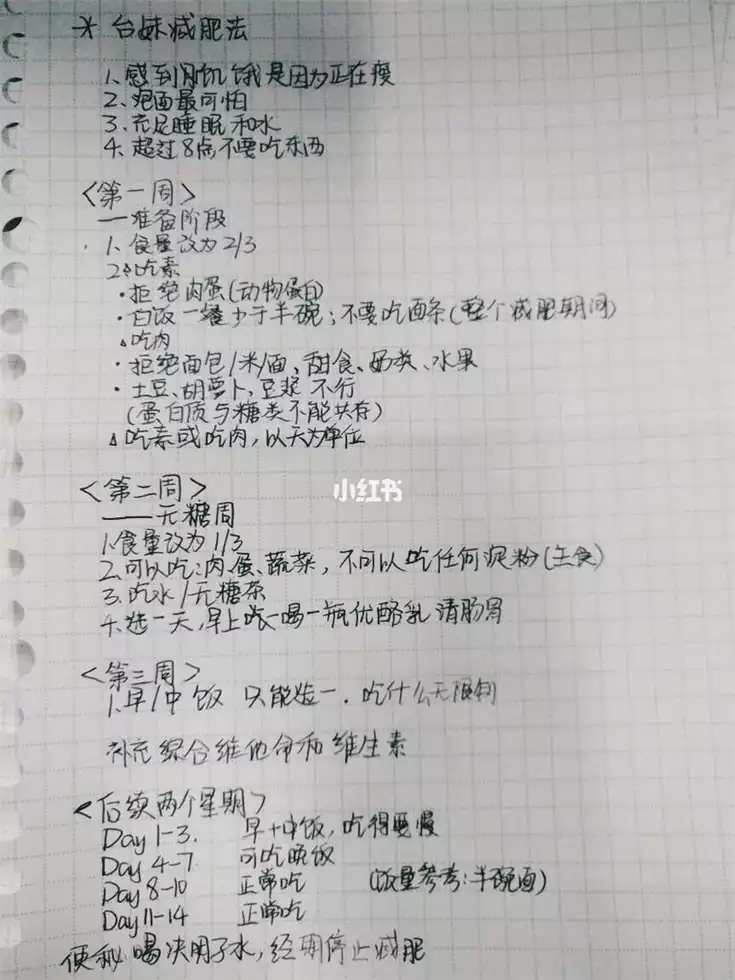 * 台妹减肥法
1. 感到饥饿是因为正在瘦
2. 泡面最可怕
3. 充足睡眠和水
4. 超过8点不要吃东西
<第一周>
—准备阶段
1. 食量改为2/3
2.△吃素
·拒绝肉蛋(动物蛋白)
·白饭一餐少于半碗;不要吃面条(整个减肥期间)
△吃肉
·拒绝面包/米/面、甜食、奶类、水果
·土豆、胡萝卜、豆浆 不行
(蛋白质与糖类不能共存)
△吃素或吃肉,以天为单位
小红书
<第二周>
——无糖周
1.食量改为1/3
2.可以吃:肉、蛋、蔬菜,不可以吃任何淀粉(主食)
3.吃水/无糖茶
4.选一天,早上喝一瓶优酪乳 清肠胃
<第三周>
1.早/中饭 只能选一.吃什么无限制
补充综合维他命和维生素
<后续两个星期>
Day 1-3. 早+中饭,吃得要慢
Day 4-7 可吃晚饭
Day 8-10 正常吃 (饭量参考:半碗面)
Day 11-14 正常吃
便秘喝决明子水,经期停止减肥